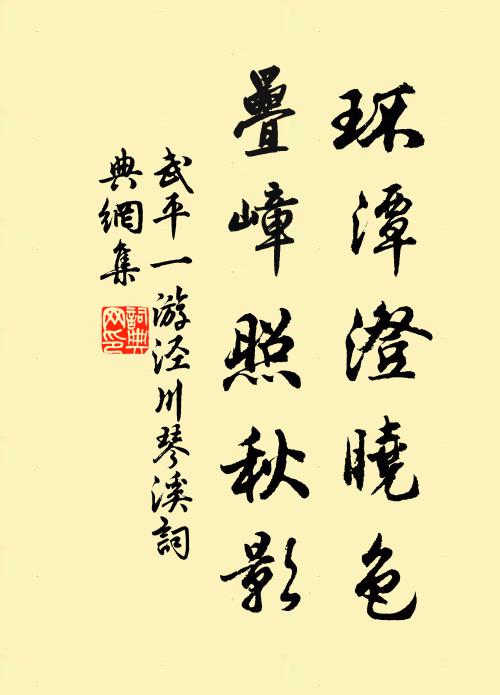 环潭澄曉色
疊嶂照秋影
武平一游泾川琴溪詞
典網集
詞典
网印